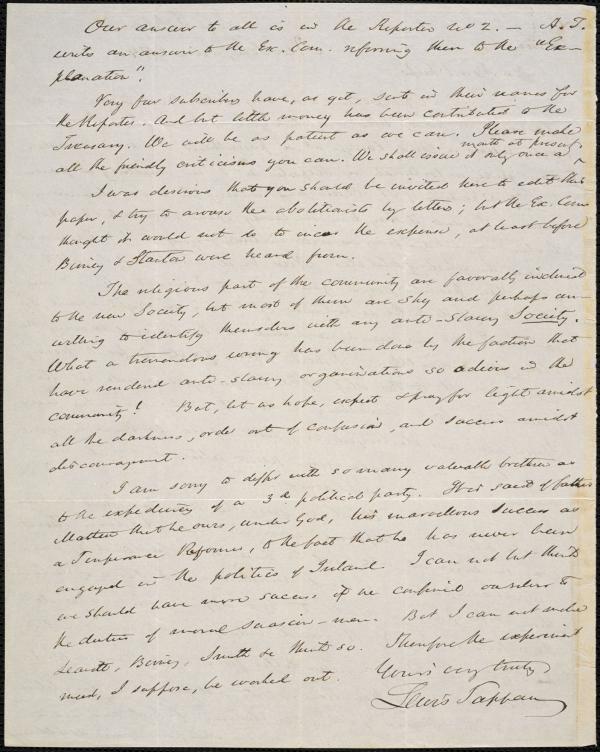 Our answer to all is in the Reporter No 2. — A. T.
writes an answer to the Ex. Com. referring them to the "Ex-
planation".
Very few subscribers have, as yet, sent in their names for
the Reporter. And but little money has been contributed to the
Treasury. We will be as patient as we can. Please make
all the friendly criticisms you can. We shall issue it only once a
month at present.
I was desirous that you should be invited here to edit this
paper, & try to arouse the abolitionists by letters; but the Ex. Com.
thought it would not do to incur the expense, at least before
Birney & Stanton were heard from.
The religious part of the community are favorably inclined
to the new Society, but most of them are shy and perhaps un-
willing to identify themselves with any anti-slavery Society.
What a tremendous wrong has been done by the faction that
have rendered anti-slavery organizations so odious in the
community! But, let us hope, expect & pray for light amidst
all the darkness, order out of confusion, and success amidst
discouragement.
I am sorry to differ with so many valuable brethren as
to the expediency of a 3d political party. It is said of father
Matthew that he owes, under God, his marvellous success as
a Temperance Reformer, to the fact that he has never been
engaged in the politics of Ireland. I can not but think
we should have more success if we confined ourselves to
the duties of moral suasion-men. But I can not make
Leavitt, Birney, Smith &c think so. Therefore the experiment
must, I suppose, be worked out. Yours very truly
Lewis Tappan